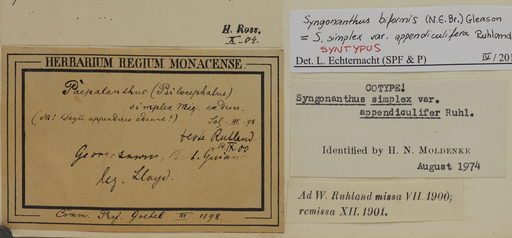 H. Ross.
X. 04.
HERBARIUM REGIUM MONACENSE
Paepalanthus (Psilocephalus)
simplex Miq.
(N! Styli appendices adsunt!) Sol. III. 98.
teste Ruhland
IX.00
Georgetown, B. Guian
leg. Lloyd.
Comm. Prof. Goebel III 1898.
Syngonanthus biformis (N.E.Br.) Gleason
= S. simplex var. appendiculifera Ruhland
SYNTYPUS
Det. L. Echternacht (SPF & P) IV/201
COTYPE!
Syngonanthus simplex var.
appendiculifer Ruhl.
Identified by H. N. MOLDENKE
August 1974
Ad W. Ruhland missa VII. 1900;
remissa XII. 1901.